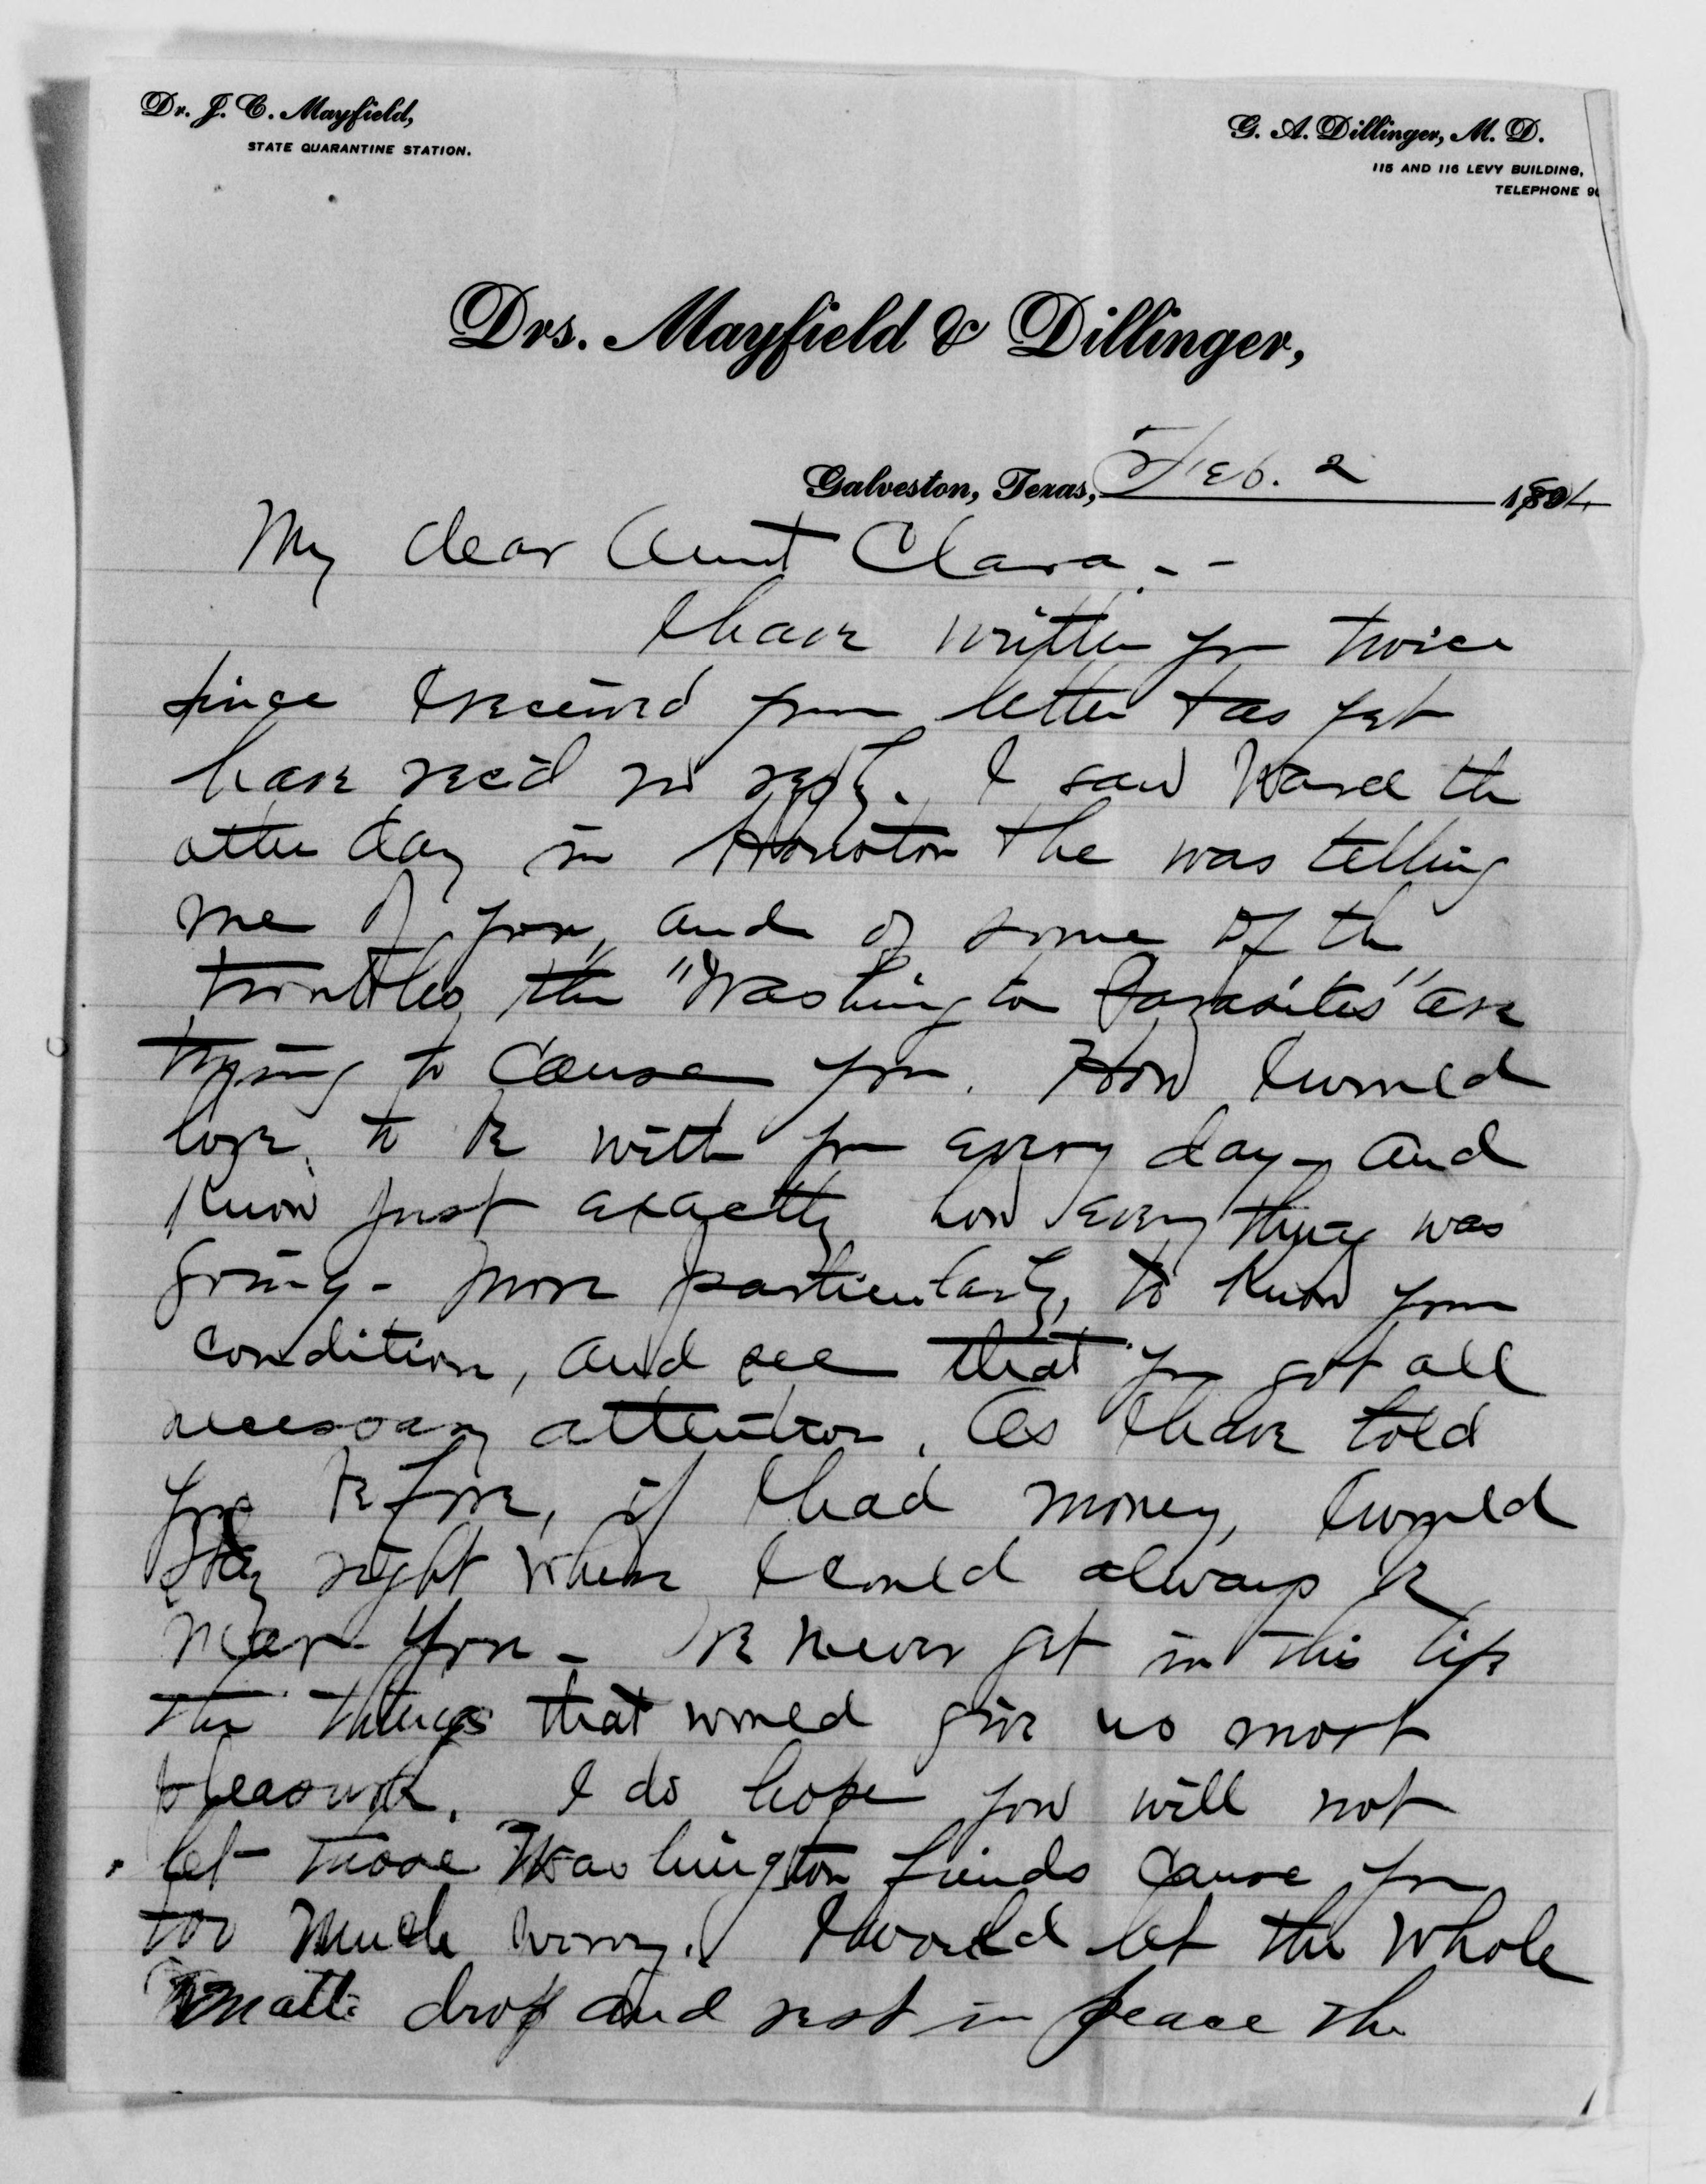 Dr. J. C. Mayfield,
STATE QUARANTINE STATION.
G. A. Dillinger, M. D.
115 AND 116 LEVY BUILDING,
TELEPHONE
Drs. Mayfield & Dillinger,
Galveston, Texas, Feb. 2 1904
My dear Aunt Clara. - -
I have written you twice
since I received your letter & as yet
have rec'd no reply. I saw Ward the
other day in Houston & he was telling
me of you, and of some of the
troubles the "Washington Parasites" are
trying to cause you. How I would
love to be with you every day - and
know just exactly how every thing was
going - more particularly, to know your
condition, and see that you got all
necessary attention. As I have told
you before, if I had money, I would
stay right where I could always be
near you - We never get in this life
the things that would give us most
pleasure. I do hope you will not
let those Washington friends cause you
too much worry. I would let the whole
matter drop and rest in peace the